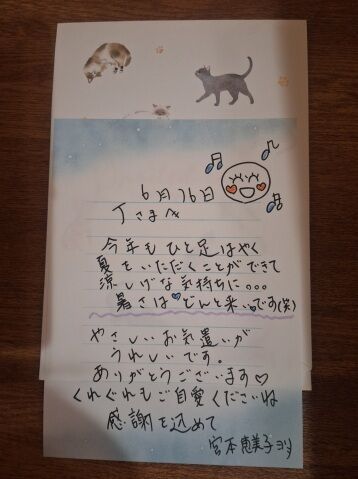 6月16日
Jさまへ
今年もひと足はやく
夏をいただくことができて
涼しげな気持ちに。。。
暑さは♡どんと来い。です(笑)
やさしいお気遣いが
うれしいです。
ありがとうございます♡
くれぐれもご自愛くださいね
感謝を込めて
宮本恵美子ヨリ